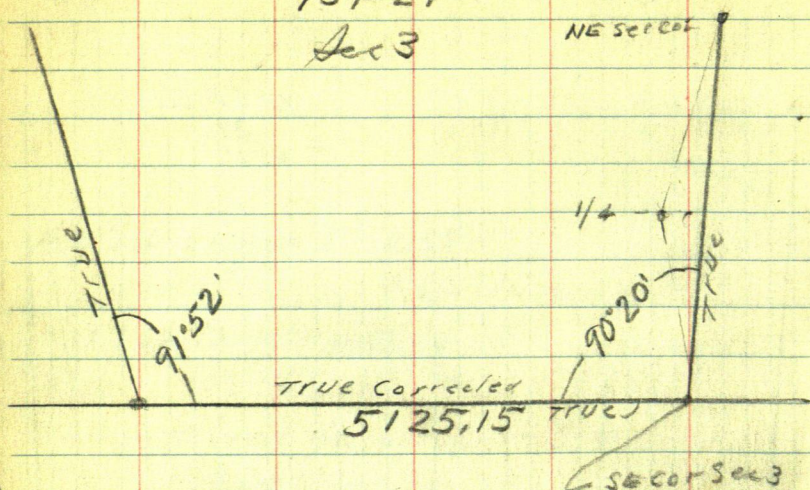 Sec 3
NE sec cor
1/4
True
91°52'
90°20'
True
True Corrected
5125.15 True
SE Cor Sec 3